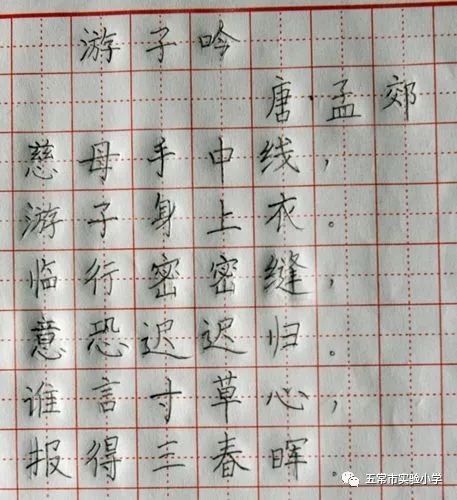 游子吟
唐·孟郊
慈母手中线，
游子身上衣。
临行密密缝，
意恐迟迟归。
谁言寸草心，
报得三春晖。
五常市实验小学